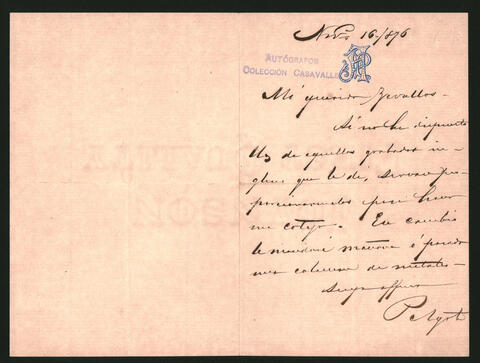 Nov. 16./876
AUTÓGRAFOS
COLECCIÓN CASAVALLE
Mi querido Zevallos -
Si no ha dispuesto
Ud de aquellos grabados in-
gleses que le di, sirvase pro-
porcionarmelos para hacer
un cotejo. En cambio
le mandaré mañana ó pasado
una coleccion de metales -
Suyo affmo